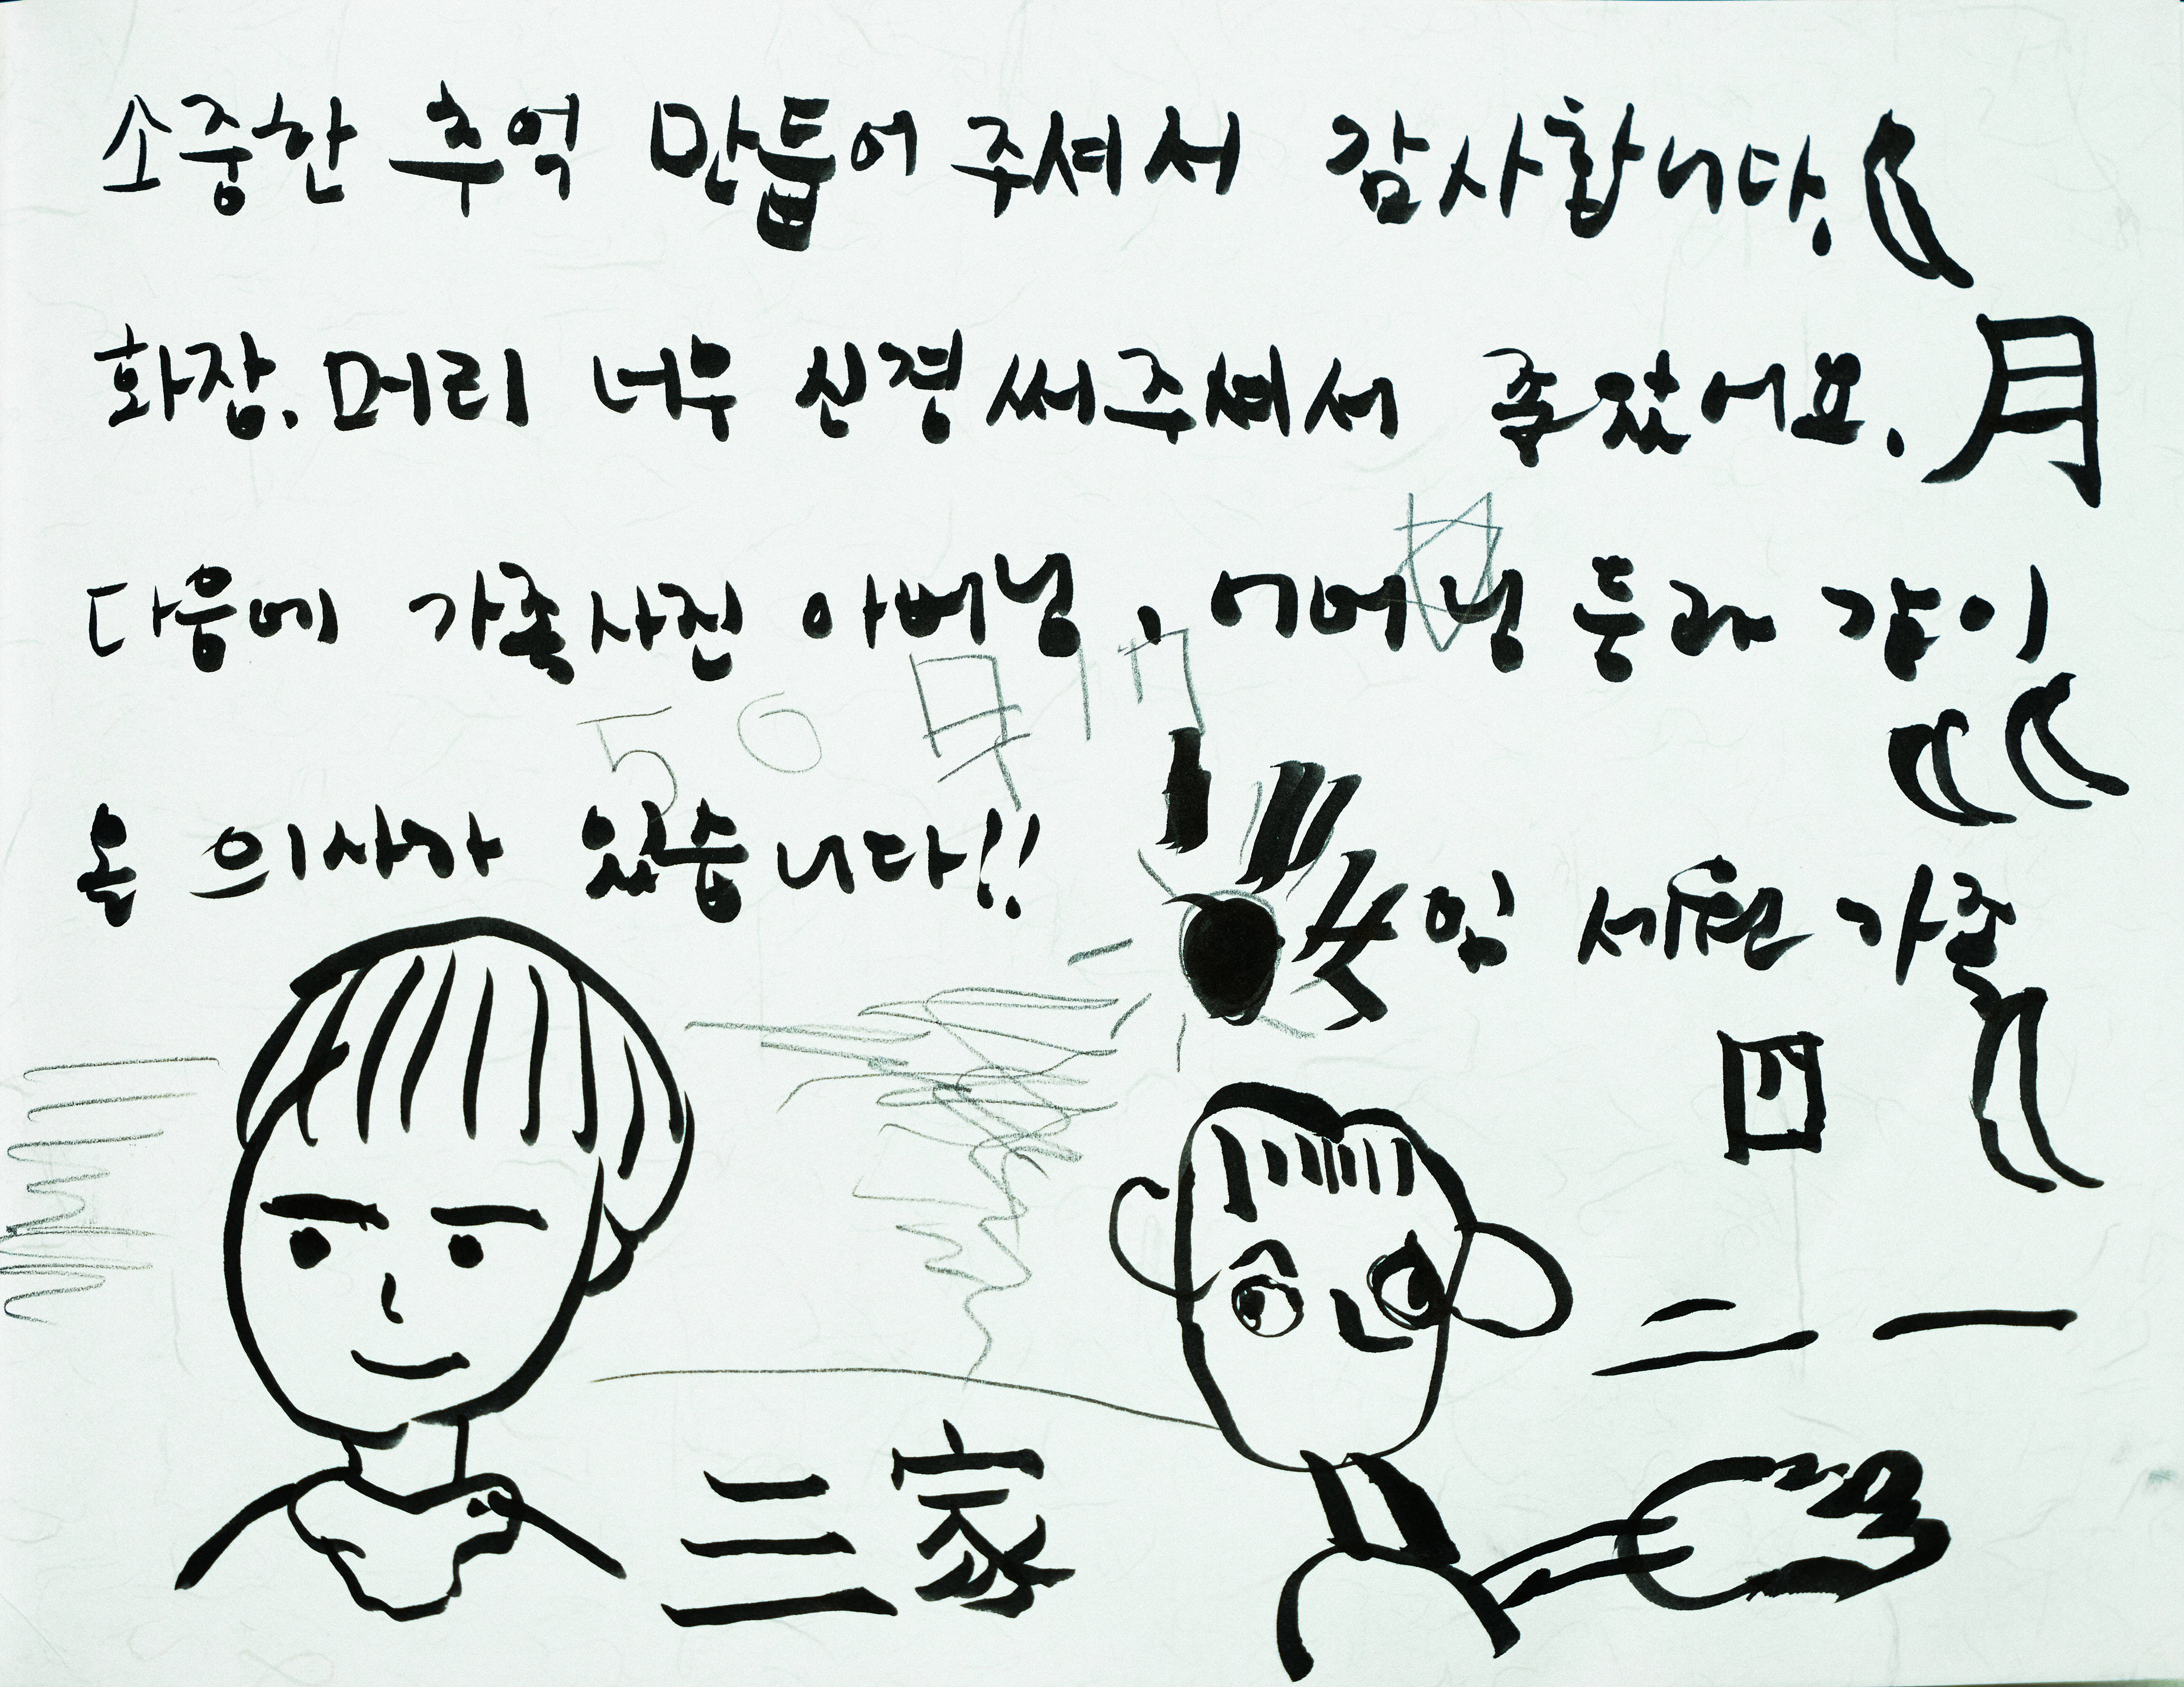 소중한 추억 만들어 주셔서 감사합니다.
화장.머리 너무 신경써주셔서 좋았어요. 月
다음에 가족사진 아버님, 어머님 둘과 같이
온 의사가 있습니다!!
임 세원 가족
四
二 一
三 家